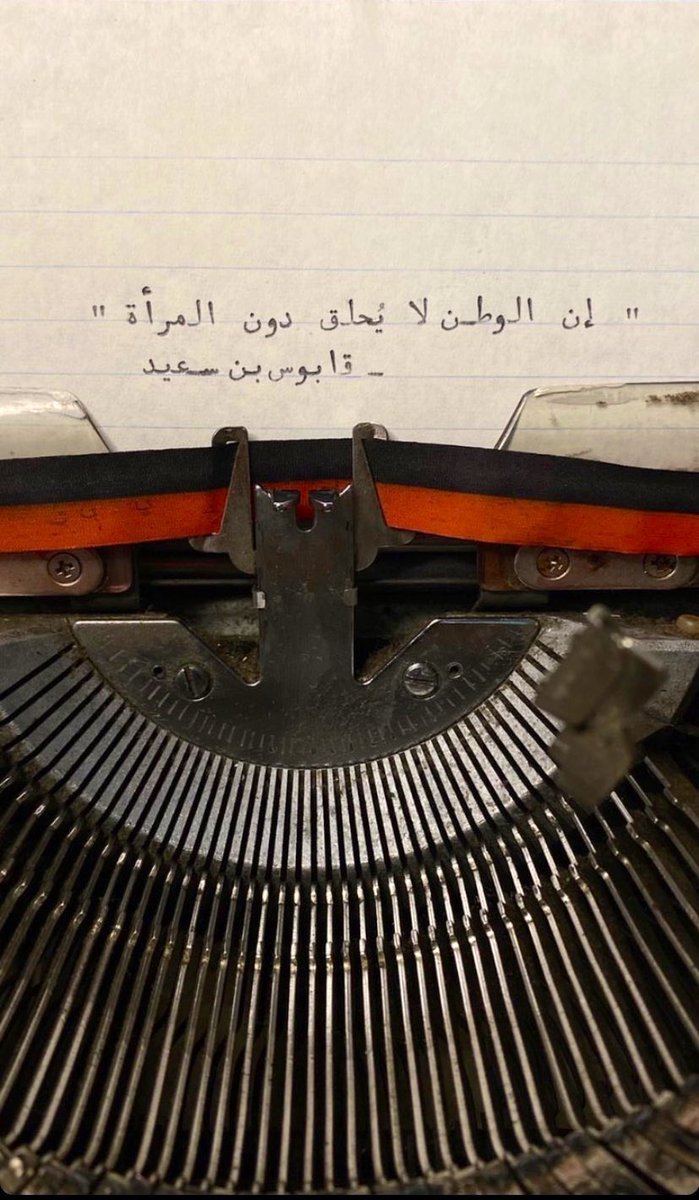 " إن الوطن لا يُحلق دون المرأة "
- قابوس بن سعيد